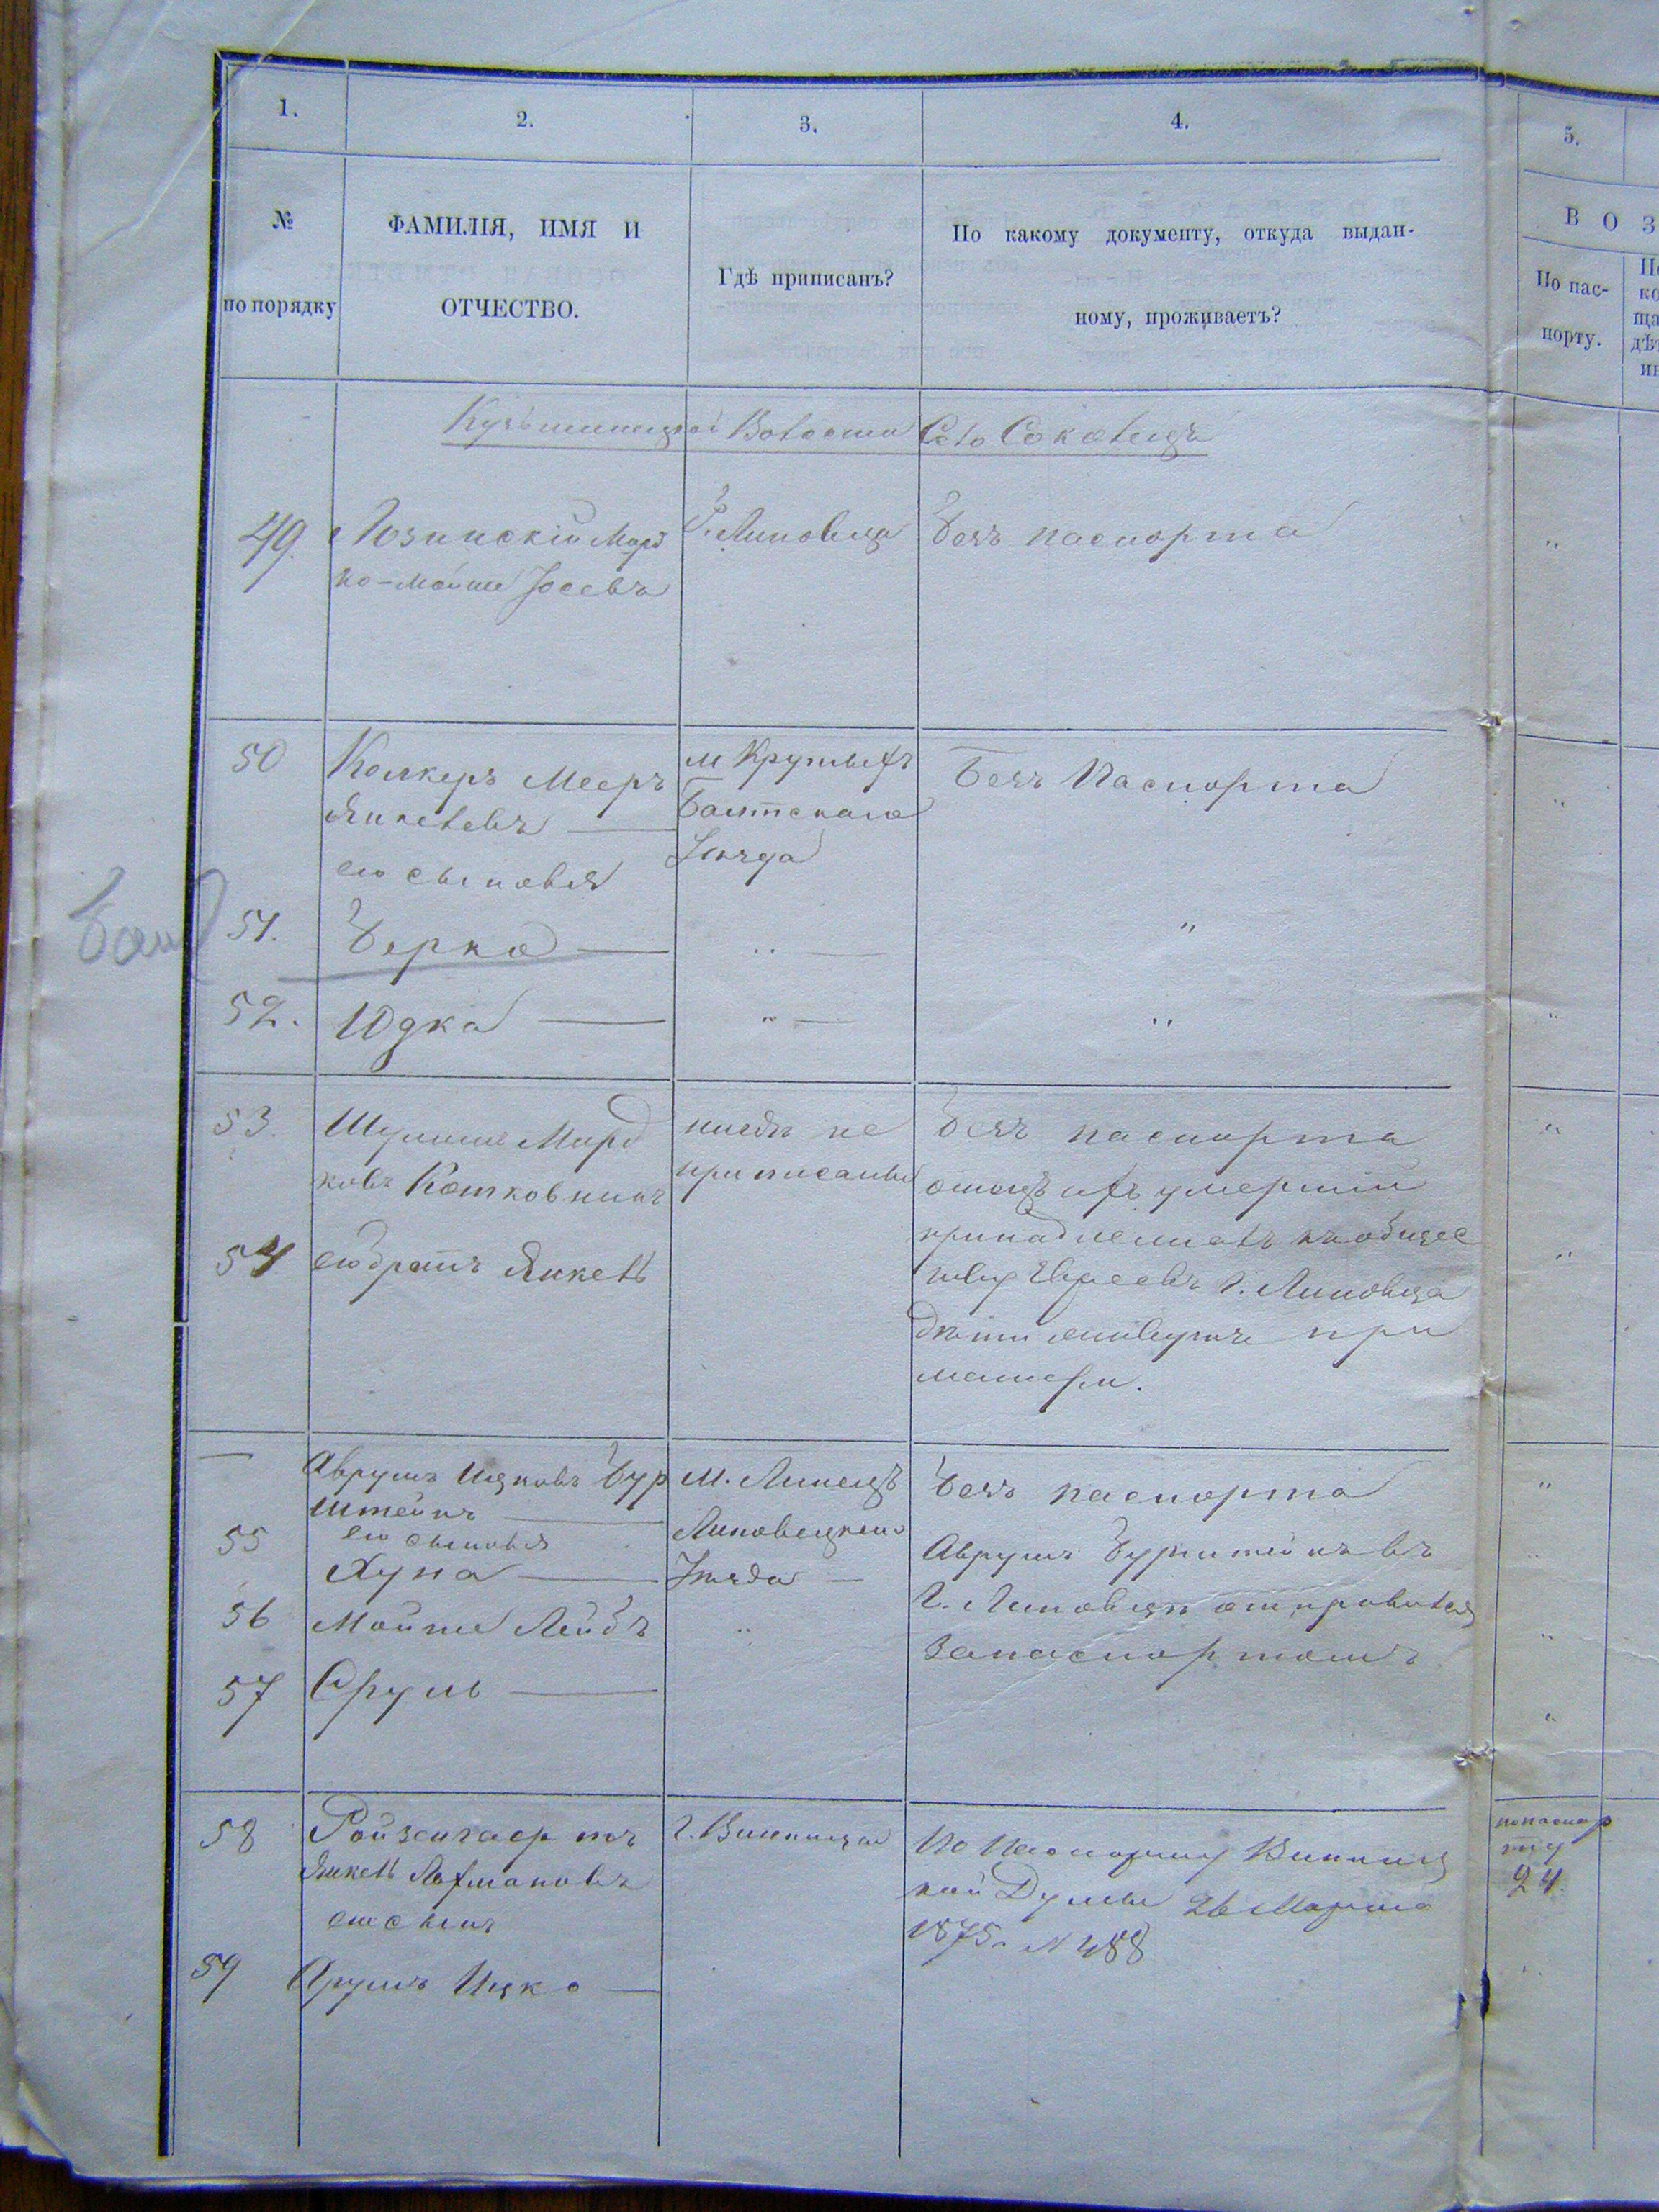 1.
2.
3.
4.
5.
№
по порядку
ФАМИЛІЯ, ИМЯ И
ОТЧЕСТВО.
Гдѣ приписанъ?
По какому документу, откуда выдан-
ному, проживаетъ?
ВОЗ
По пас-
порту.
Волости Село Соколецъ
49.
Лозинскій Мор
ко-Мойше Іосевъ
Г. Липовца
Безъ паспорта
"
50
Колкеръ Мееръ
Янкелевъ
его сыновья
м Крутыхъ
Балтскаго
Уѣзда
Безъ Паспорта
"
51.
Берко
"
"
52.
Юдка
"
"
"
53
Шулимъ Морд
ковъ Котковникъ
нигдѣ не
приписаны
Безъ паспорта
отецъ ихъ умершій
принадлежалъ къ общес
тву Евреевъ г. Липовца
дѣти живутъ при
матери.
"
54
его братъ Янкель
"
—
Аврумъ Ицковъ Бур
штейнъ
его сыновья
М. Линецъ
Липовецкаго
Уѣзда
Безъ паспорта
Аврумъ Бурштейнъ въ
Г. Липовецъ отправился
за паспортомъ
"
55
Хуна
"
56
Мойше Лейбъ
"
"
57
Сруль
"
58
Ройзенгаертъ
Янкель Лахмановъ
его сынъ
г. Винница
По Паспорту Винниц
кой Думы 26 Марта
1875 г. № 488
по паспор
ту
24.
59
Арумъ Ицко